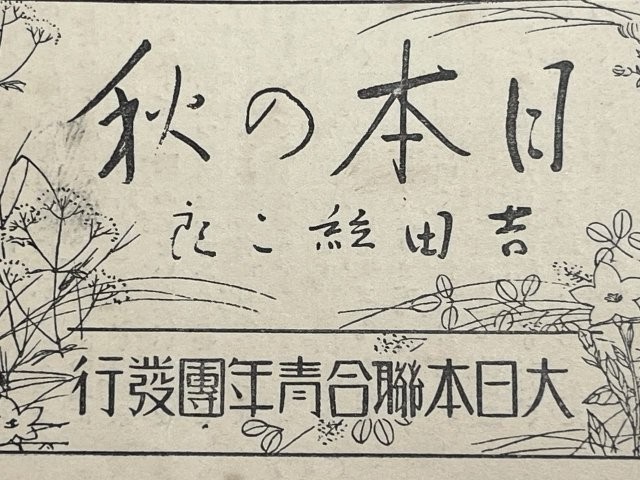 日本の秋
吉田絃二郎
大日本聯合青年團發行